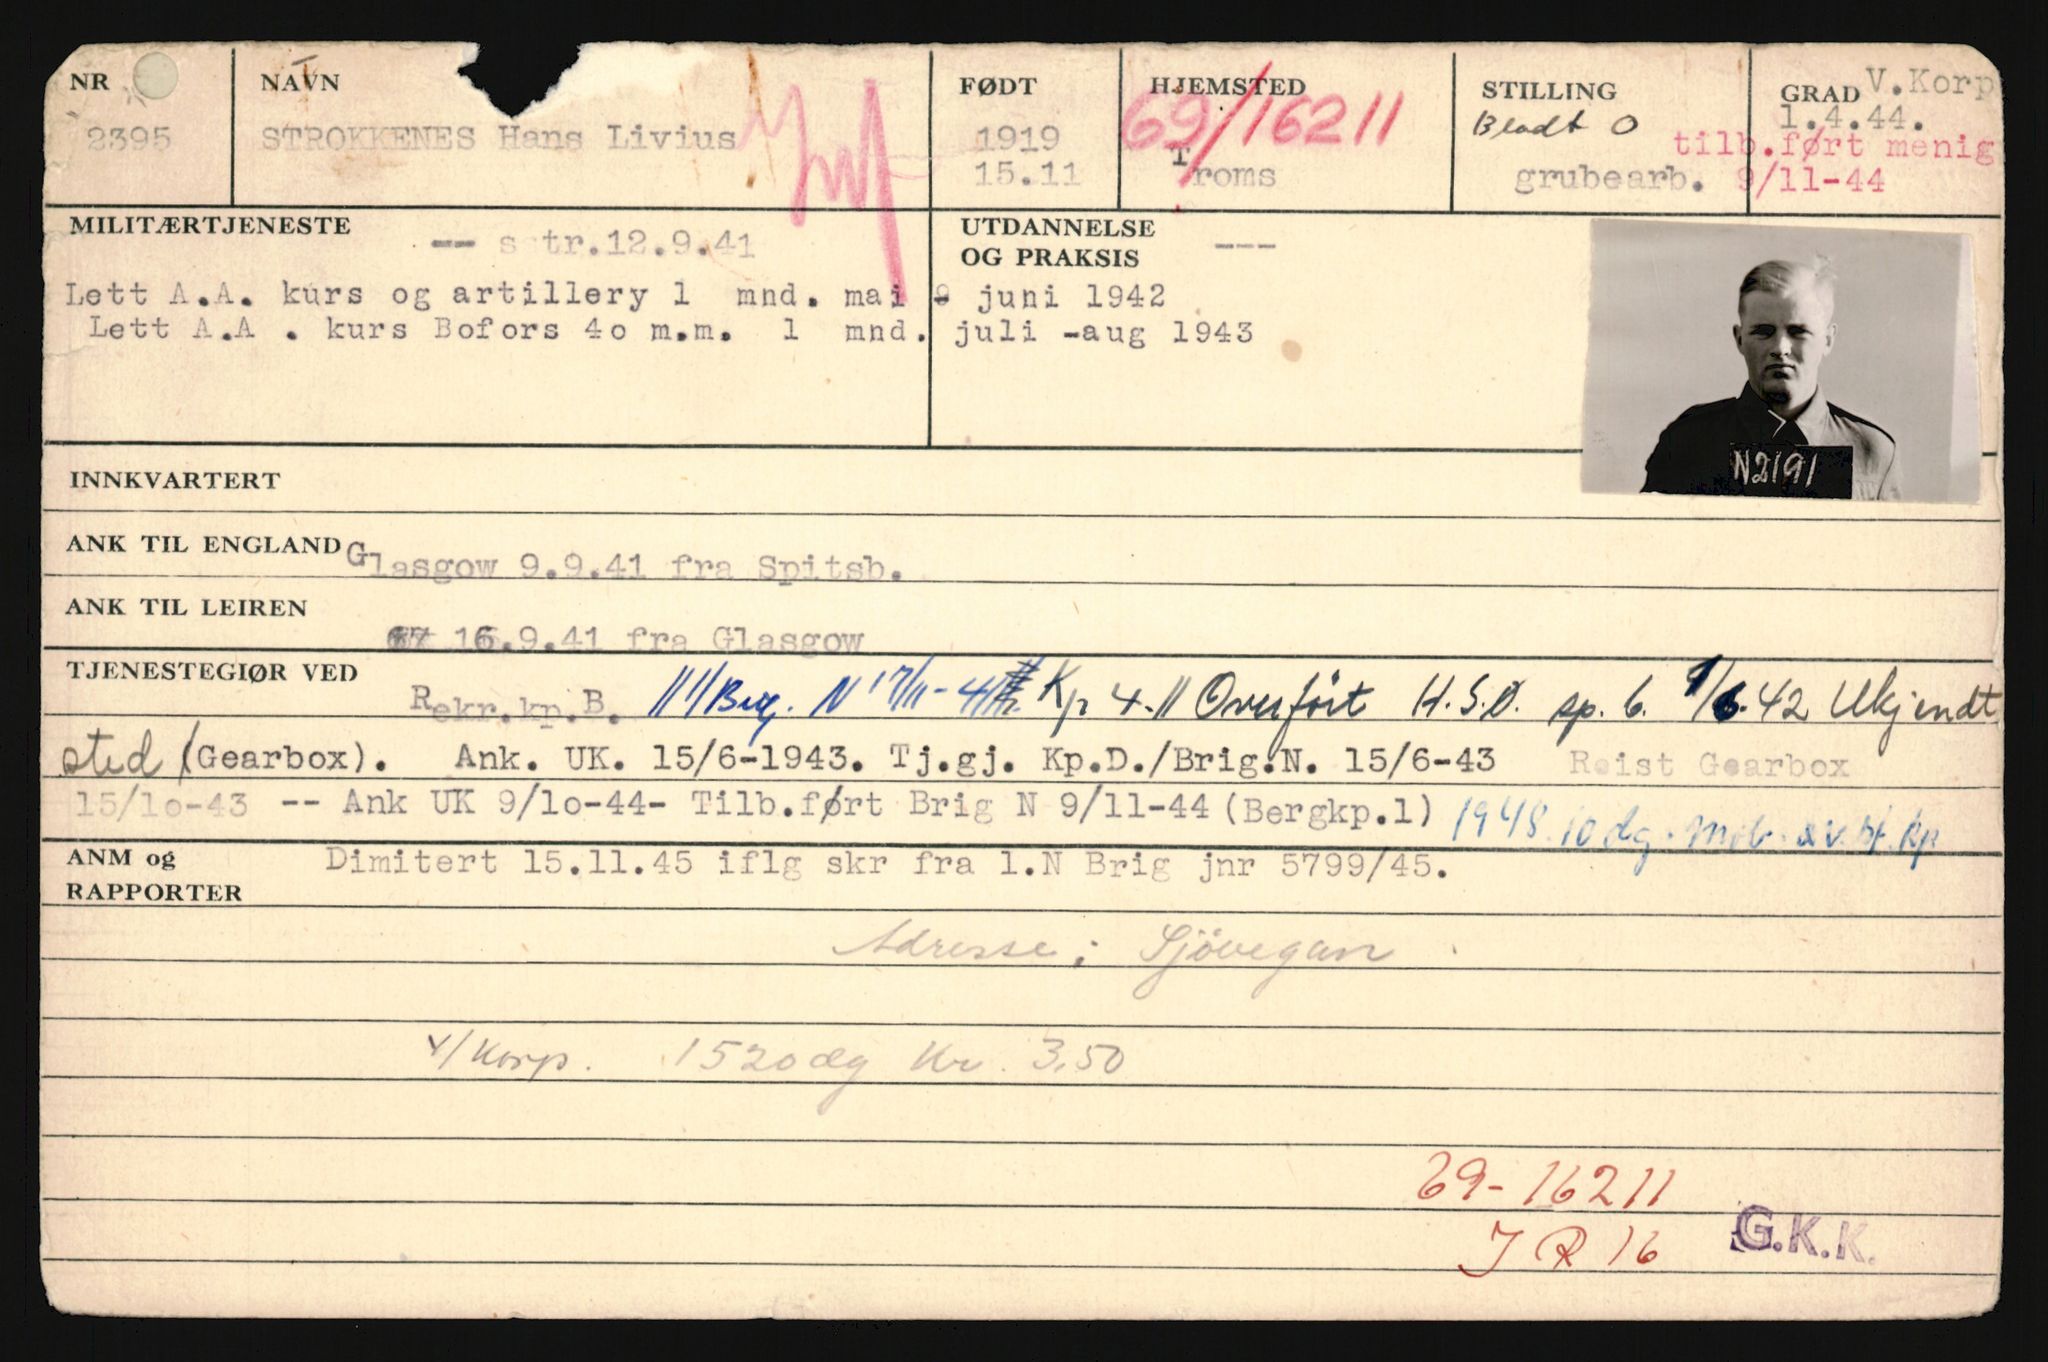 NR NAVN FØDT HJEMSTED STILLING GRAD V.Korp
2395 STROKKENES Hans Livius Inf 1919 69/16211 Blodt O 1.4.44.
tilb.ført menig
15.11 Troms grubearb. 9/11-44
MILITÆRTJENESTE -- sstr.12.9.41 UTDANNELSE
OG PRAKSIS ---
Lett A.A. kurs og artillery 1 mnd. mai - juni 1942
Lett A.A . kurs Bofors 4o m.m. 1 mnd. juli -aug 1943
N2191
INNKVARTERT
ANK TIL ENGLAND Glasgow 9.9.41 fra Spitsb.
ANK TIL LEIREN
16.9.41 fra Glasgow
TJENESTEGIØR VED
Rekr.kp.B. Brig. N 17/11-41 Kp 4.11 Overført H.S.Ø. sp. 6. 9/6.42 Ukjendt
sted (Gearbox). Ank. UK. 15/6-1943. Tj.gj. Kp.D./Brig.N. 15/6-43 Reist Gearbox
15/1o-43 -- Ank UK 9/1o-44- Tilb.ført Brig N 9/11-44 (Bergkp.1) 1948. 10 dg. Mob. av. kp
ANM og Dimitert 15.11.45 iflg skr fra 1.N Brig jnr 5799/45.
RAPPORTER
Adresse: Sjövegan
V/Korp. 1520 dg Kr. 3,50
69-16211
I R 16 G.K.K.